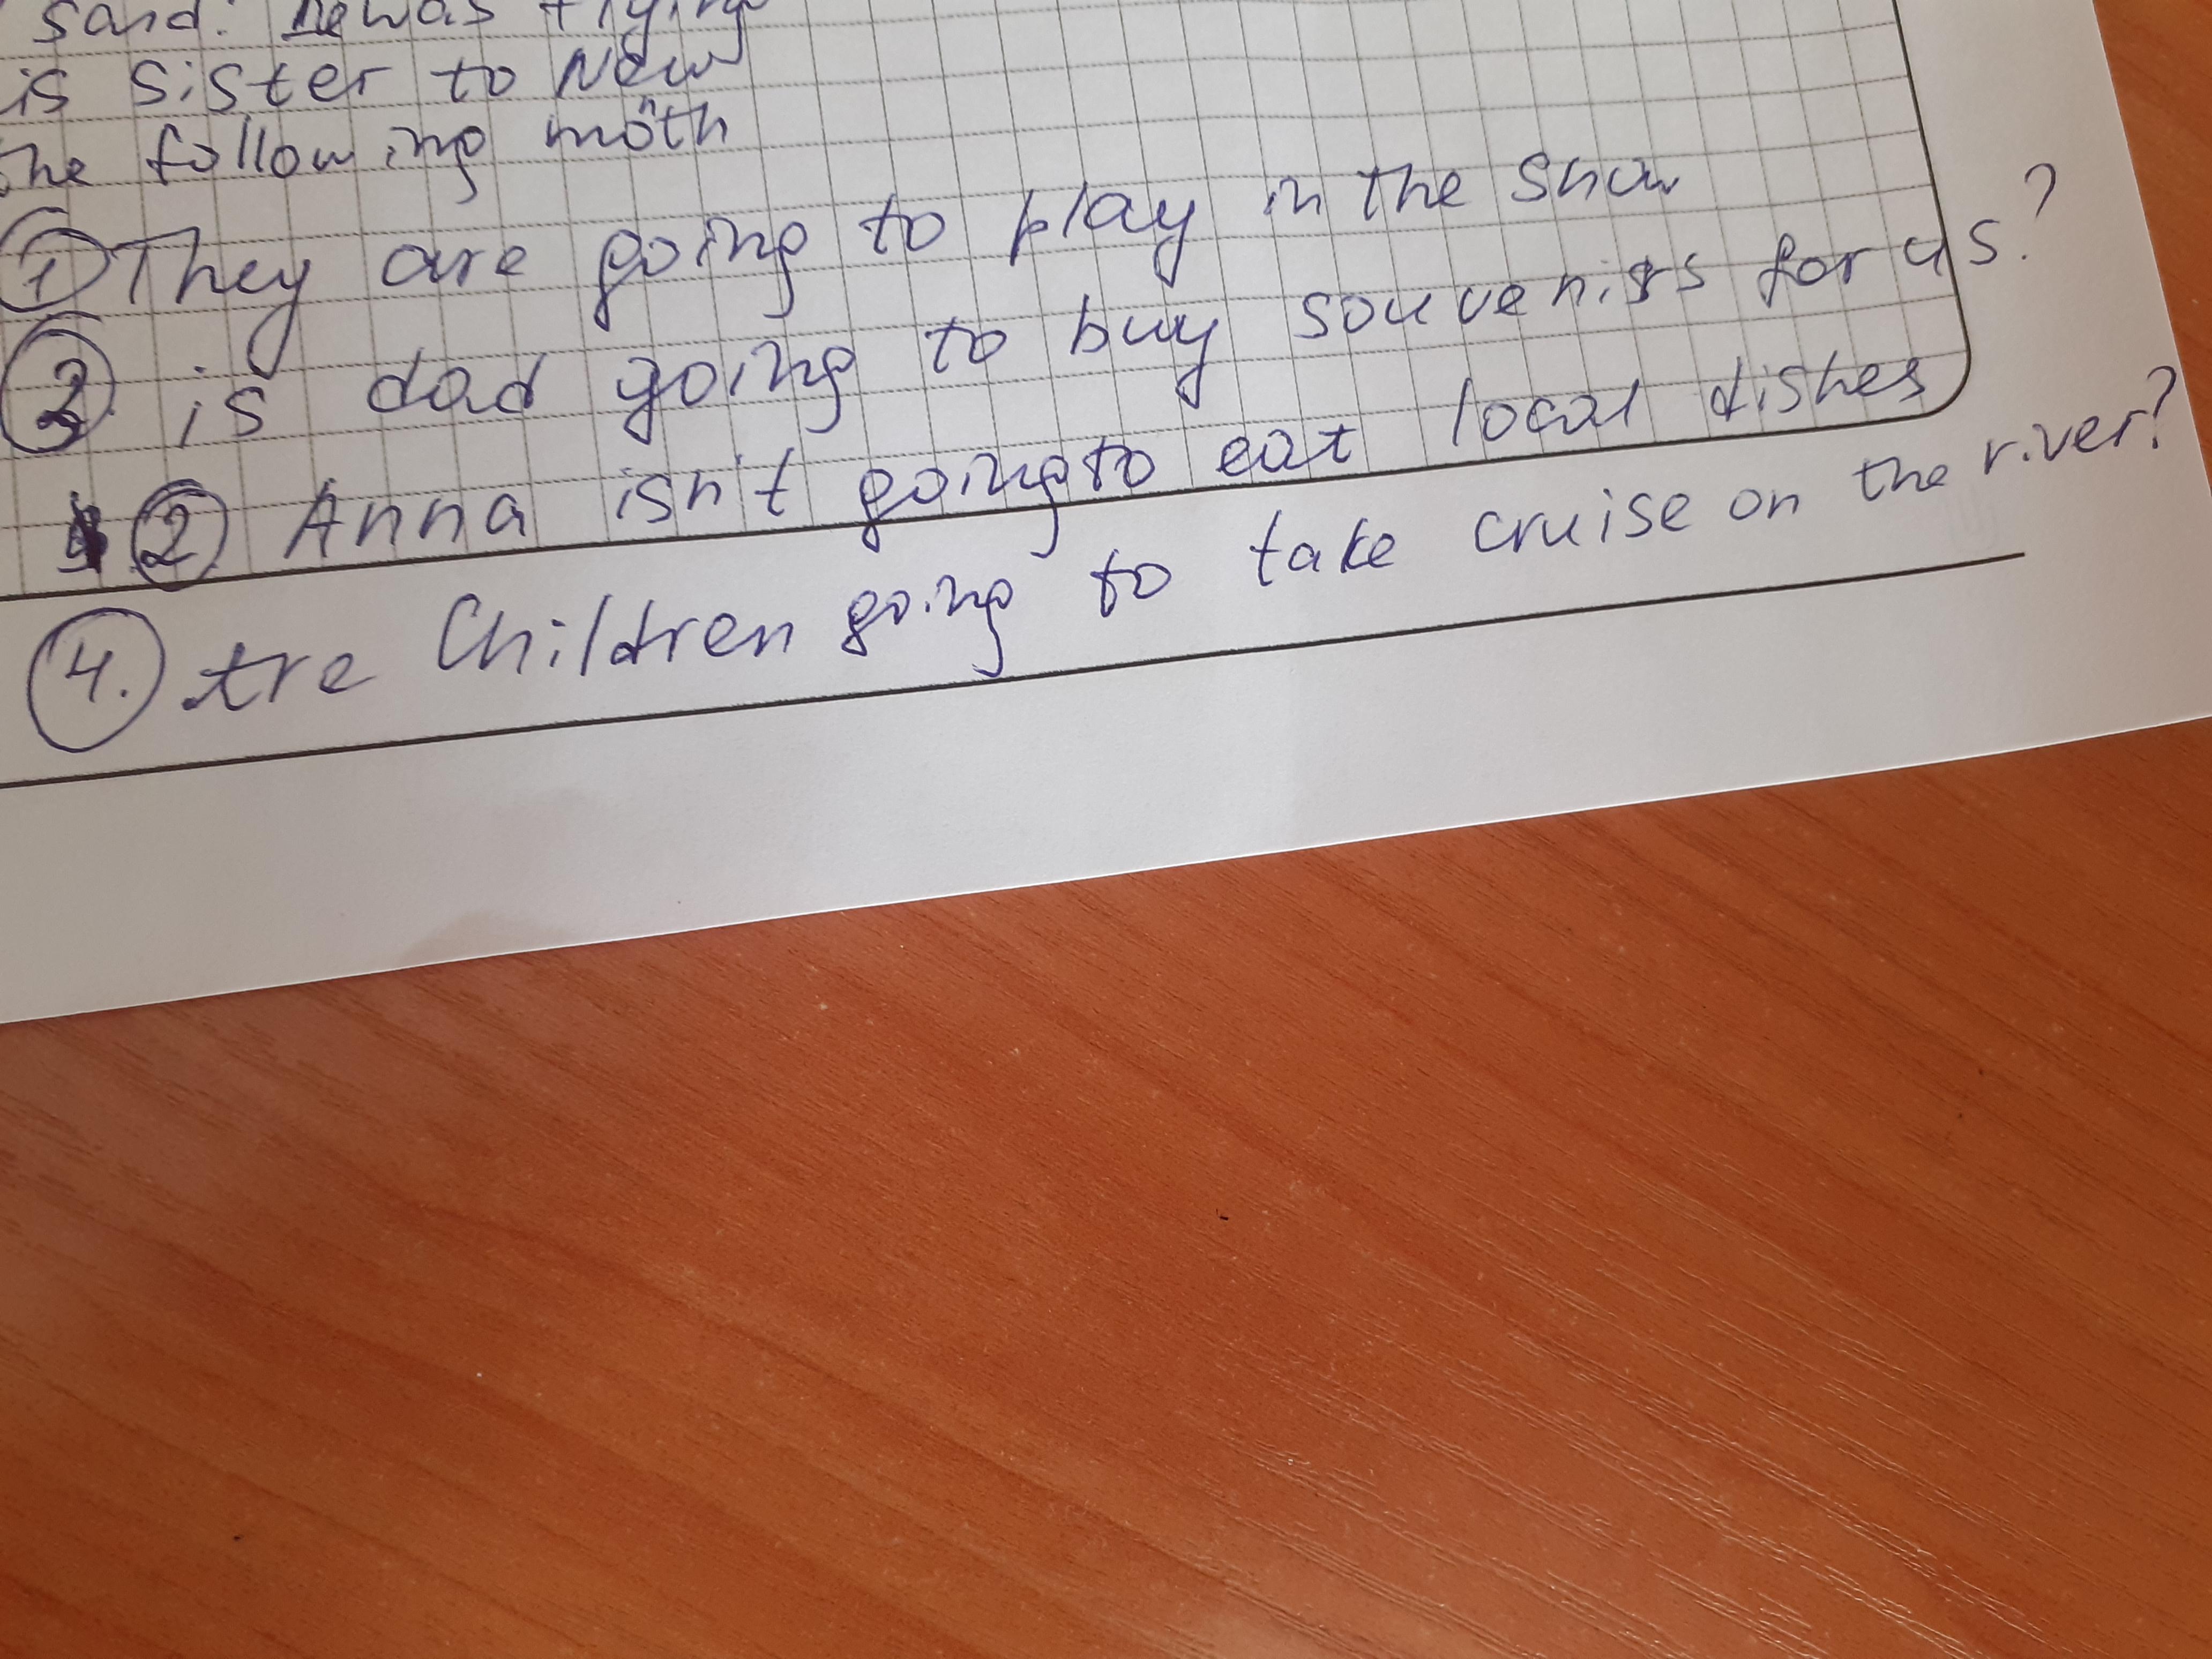 said: he was flying
is sister to New
the following month
1 They are going to play in the snow
3 is dad going to buy souvenirs for us?
2 Anna isn't going to eat local dishes
4. Are Children going to take cruise on the river?